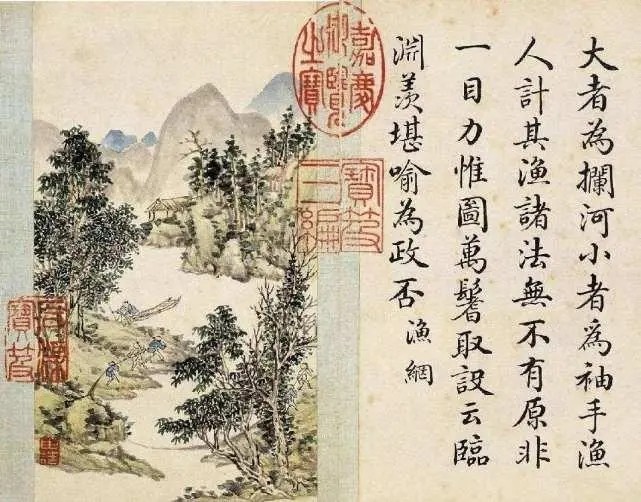 大者為攔河小者爲袖手漁
人計其漁諸法無不有原非
一目力惟圖萬鬐取設云臨
淵羨堪喻為政否
漁網
嘉慶御覽之寶
寶笈三編
石渠寶笈